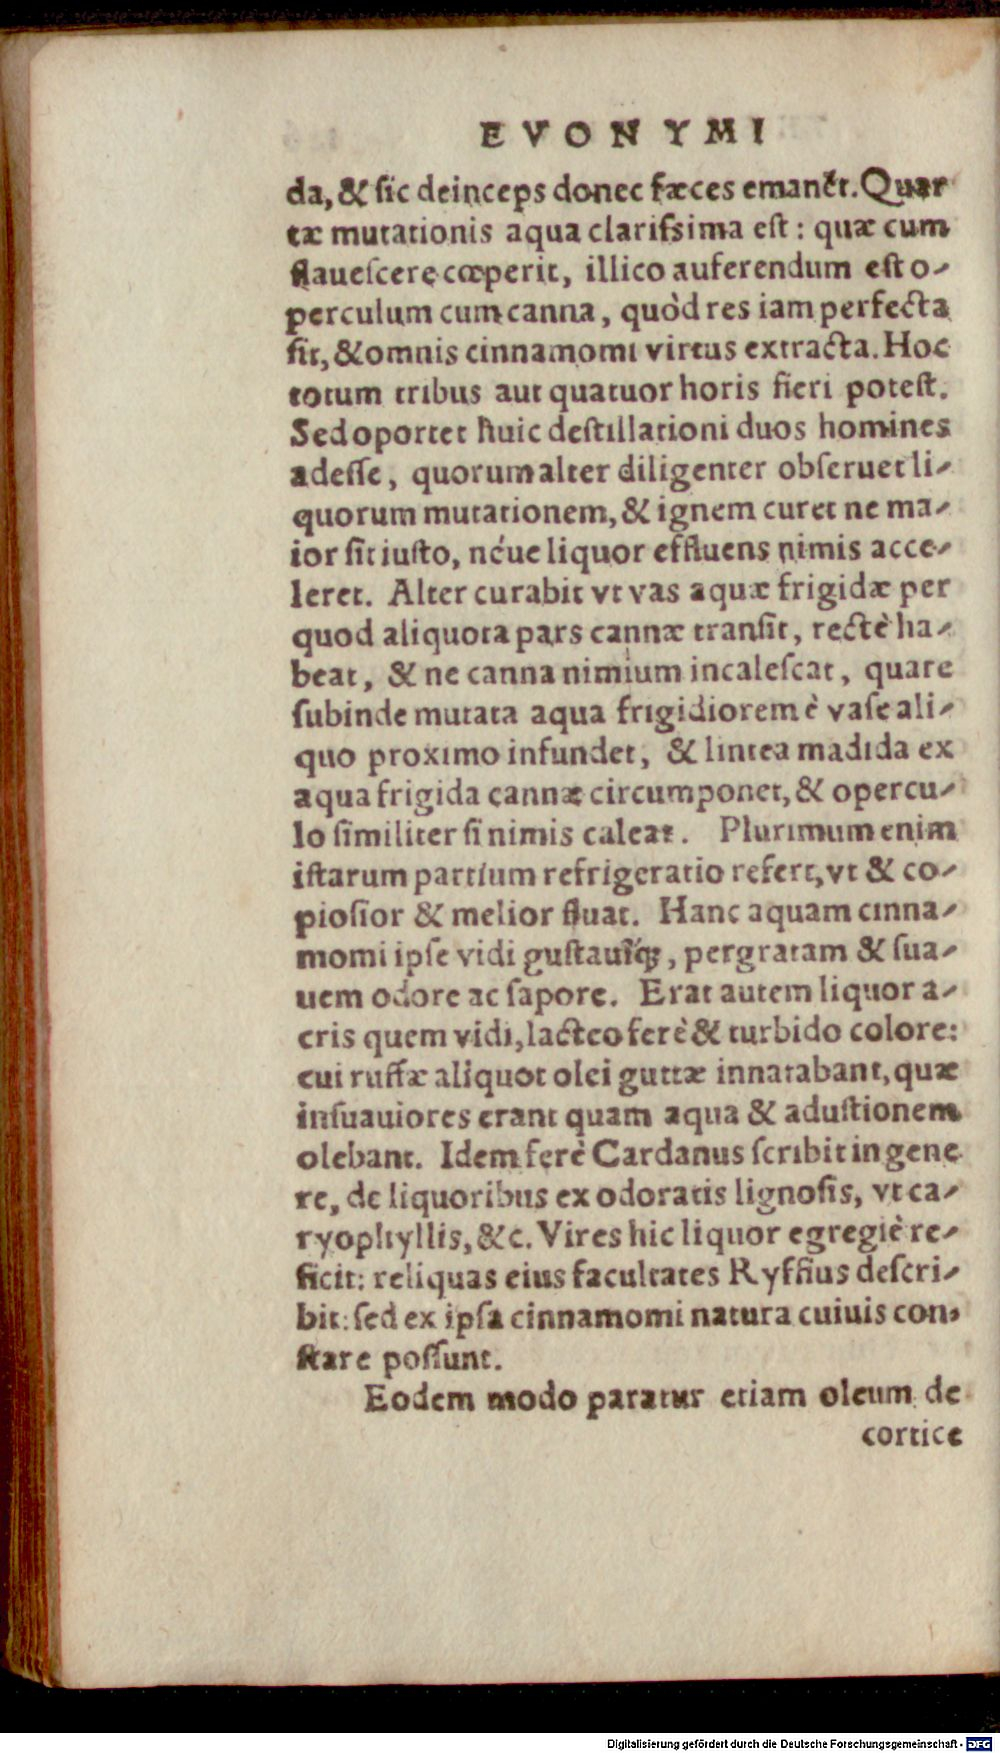 EVONYMI
da, & ſic deinceps donec fæces emanẽt. Quar
tæ mutationis aqua clariſsima eſt: quæ cum
flaueſcere cœperit, illico auferendum eſt o-
perculum cum canna, quòd res iam perfecta
ſit, & omnis cinnamomi virtus extracta. Hoc
totum tribus aut quatuor horis fieri poteſt.
Sed oportet huic deſtillationi duos homines
adeſſe, quorum alter diligenter obſeruet li-
quorum mutationem, & ignem curet ne ma-
ior ſit iuſto, néue liquor effluens nimis acce-
leret. Alter curabit vt vas aquæ frigidæ per
quod aliquota pars cannæ tranſit, rectè ha-
beat, & ne canna nimium incaleſcat, quare
ſubinde mutata aqua frigidiorem è vaſe ali-
quo proximo infundet, & lintea madida ex
aqua frigida cannæ circumponet, & opercu-
lo ſimiliter ſi nimis caleat. Plurimum enim
iſtarum partium refrigeratio refert, vt & co-
pioſior & melior fluat. Hanc aquam cinna-
momi ipſe vidi guſtauíq;, pergratam & ſua-
uem odore ac ſapore. Erat autem liquor a-
cris quem vidi, lacteo ferè & turbido colore:
cui ruffæ aliquot olei guttæ innatabant, quæ
inſuauiores erant quam aqua & aduſtionem
olebant. Idem ferè Cardanus ſcribit in gene
re, de liquoribus ex odoratis lignoſis, vt ca-
ryophyllis, &c. Vires hic liquor egregiè re-
ficit: reliquas eius facultates Ryffius deſcri-
bit: ſed ex ipſa cinnamomi natura cuiuis con-
ſtare poſſunt.
Eodem modo paratur etiam oleum de
cortice
Digitalisierung gefördert durch die Deutsche Forschungsgemeinschaft - DFG